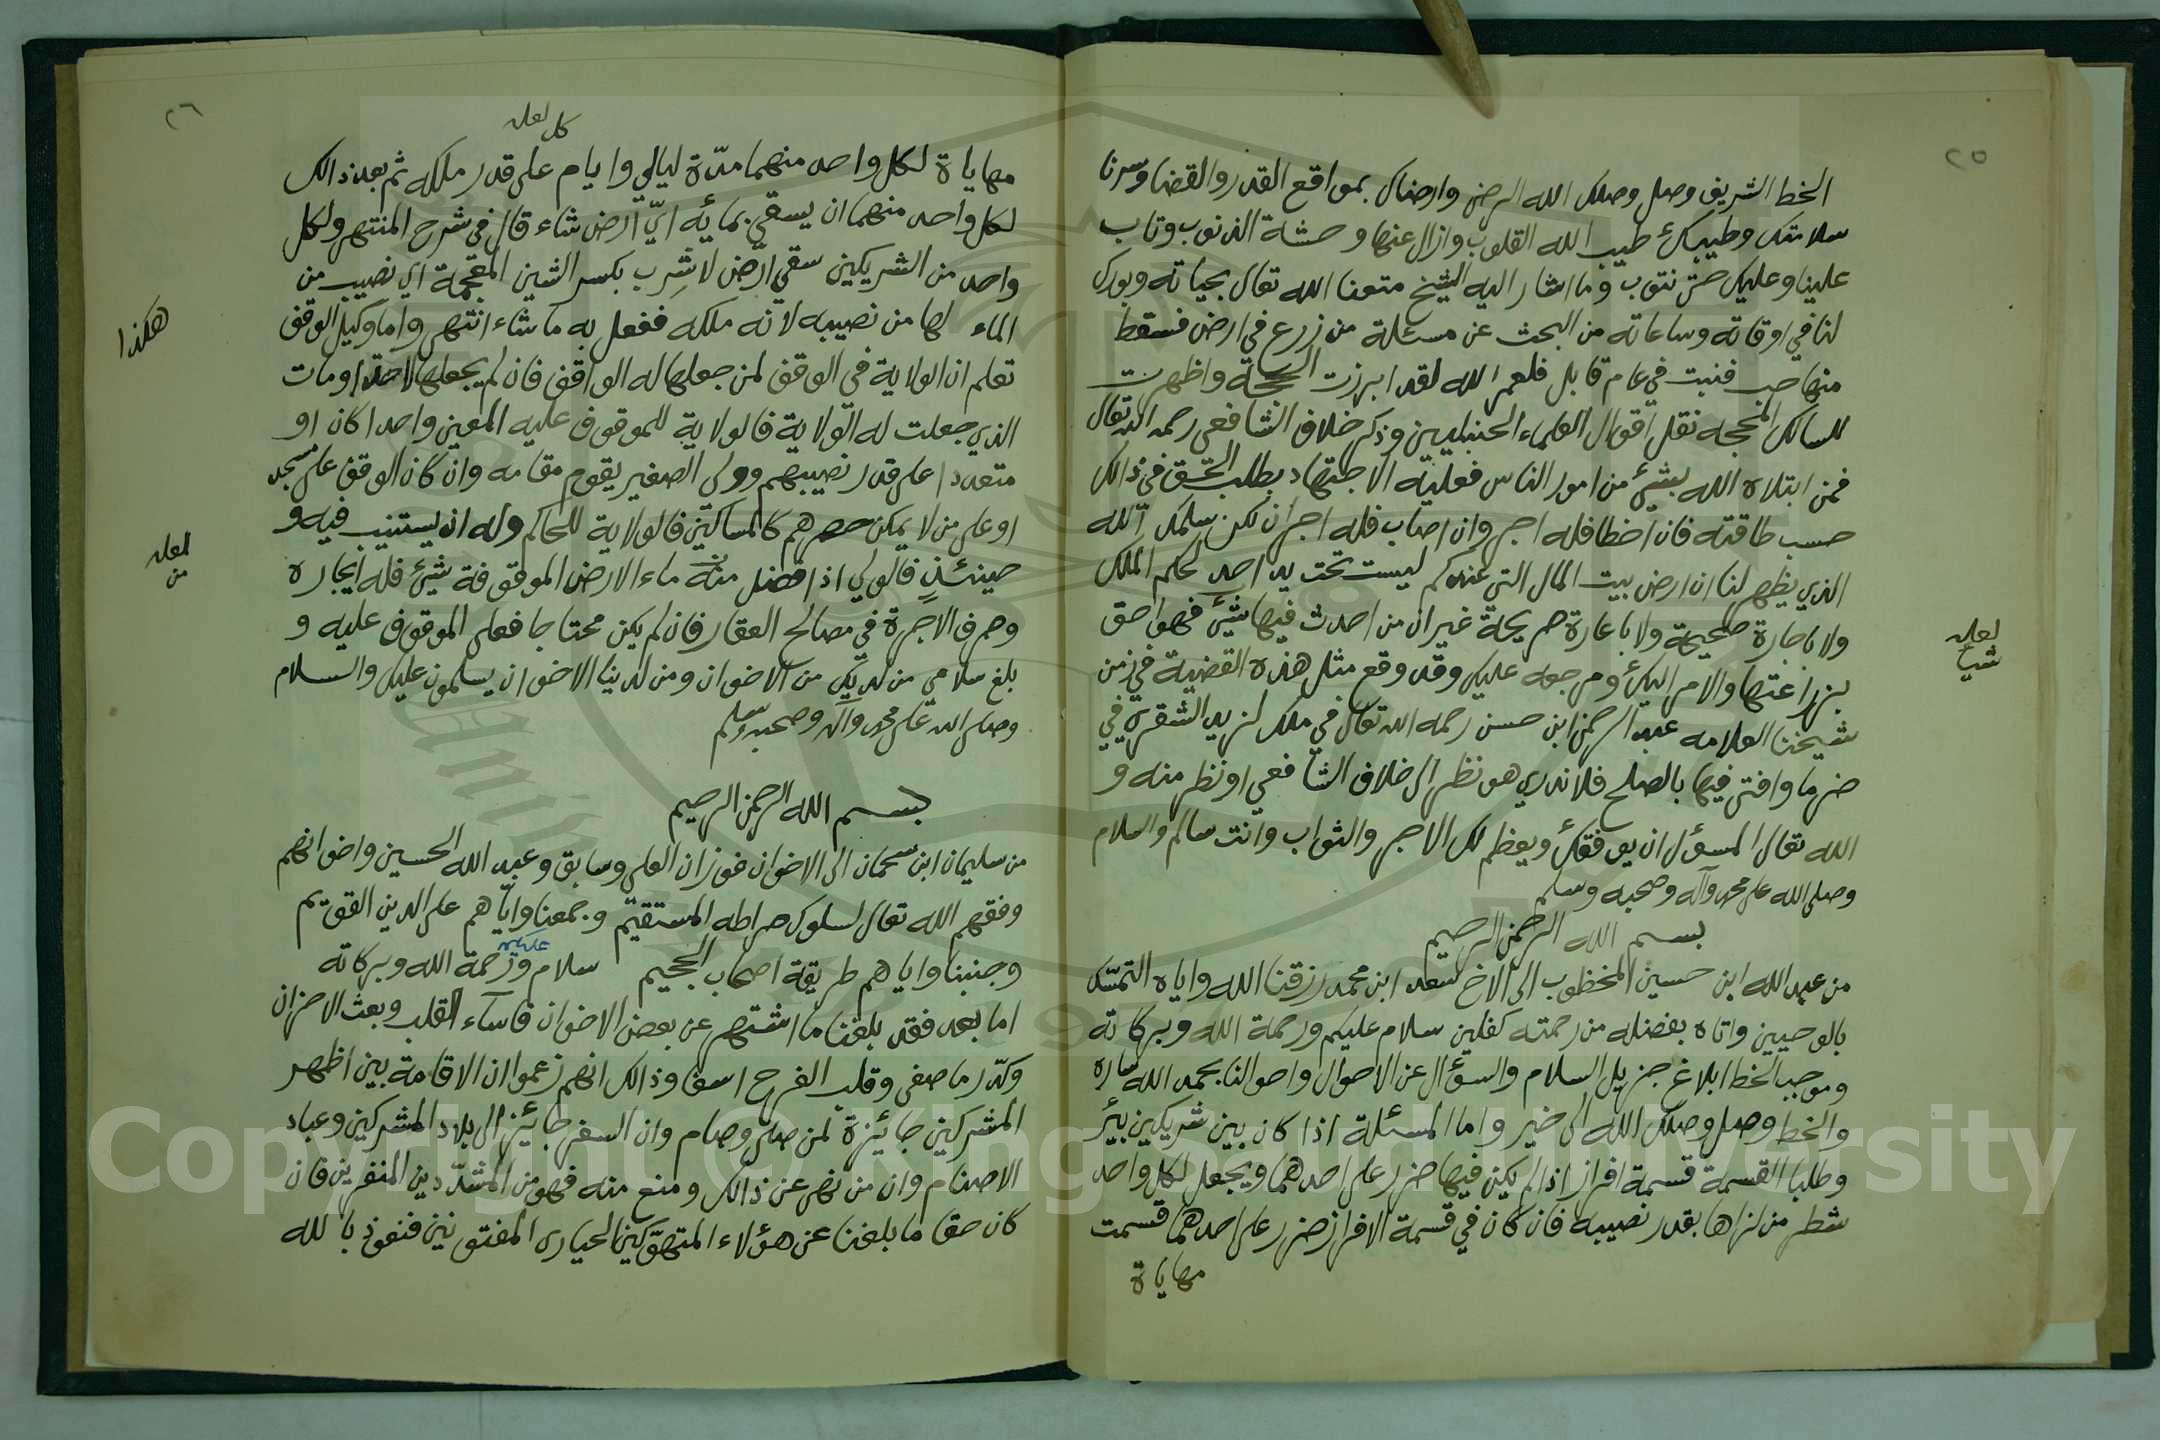 ٢٥
الخط الشريف وصل وصلك الله الرضى وارضاك بمواقع القدر والقضا وسرنا
سلامتك وطيبك طيب الله القلوب وازال عنها وحشة الذنوب وتاب
علينا وعليك حتى نتوب وما اشار اليه الشيخ متعنا الله تعالى بحياته وبورك
لنا في اوقاته وساعاته من البحث عن مسئلة من زرع في ارض فسقط
منها حب فنبت في عام قابل فلعمر الله لقد ابرزت الحجة واظهرت
للسالك المحجه نقل اقوال العلماء الحنبليين وذكر خلاف الشافعي رحمه الله تعالى
فمن ابتلاه الله بشئ من امور الناس فعليه الاجتهاد بطلب الحق في ذالك
حسب طاقته فان اخطا فله اجر وان اصاب فله اجران لكن سلمك الله
الذي يظهر لنا ان ارض بيت المال التي عندكم ليست تحت يد احد بحكم الملك
ولا باجارة صحيحة ولا باعارة صريحة غير ان من احدث فيها شئ فهو احق
لعله
شيأ
بزراعتها والامر اليك ومرجعه عليك وقد وقع مثل هذه القضية في زمن
شيخنا العلامه عبد الرحمن ابن حسن رحمه الله تعالى في ملك لزيد الشقري في
ضرما وافتى فيها بالصلح فلا ندري هو نظر الى خلاف الشافعي او نظر منه و
الله تعالى المسؤل ان يوفقك ويعظم لك الاجر والثواب وانت سالم والسلام
وصلى الله على محمد وآله وصحبه وسلم
بسم الله الرحمن الرحيم
من عبد الله ابن حسين المخظوب الى الاخ سعد ابن محمد رزقنا الله واياه التمسك
بالوحيين واتاه بفضله من رحمته كفلين سلام عليكم ورحمة الله وبركاته
وموجب الخط ابلاغ جزيل السلام والسؤال عن الاحوال واحوالنا بحمد الله ساره
والخط وصل وصلك الله الى خير واما المسئلة اذا كان بين شريكين بئر
وطلبا القسمة قسمة افراز اذا لم يكن فيها ضرر على احدهما ويجعل لكل واحد
شطر من نزاها بقدر نصيبه فان كان في قسمة الافراز ضرر على احدهما قسمت
مهاياة
٢٦
كل لعله
مهاياة لكل واحد منهما مدّة ليالي وايام على قدر ملكه ثم بعد ذالك
لكل واحد منهما ان يسقي بمائه ايّ ارض شاء قال في شرح المنتهى ولكل
واحد من الشريكين سقي ارض لا شِرب بكسر الشين المعجمة اي نصيب من
الماء لها من نصيبه لانه ملكه ففعل به ما شاء انتهى واما وكيل الوقف
هكذا
تعلم ان الولاية في الوقف لمن جعلها له الواقف فان لم يجعلها لاحد او مات
الذي جعلت له الولاية فالولاية للموقوف عليه المعين واحدا كان او
متعددا على قدر نصيبهم وولي الصغير يقوم مقامه وان كان الوقف على مسجد
او على من لا يمكن حصرهم كالمساكين فالولاية للحاكم وله ان يستنيب فيه و
حينئذٍ فالولي اذا فضل منه ماء الارض الموقوفة شئ فله ايجاره
لعله
من
وصرف الاجرة في مصالح العقار فان لم يكن محتاجا فعلى الموقوف عليه و
بلغ سلامي من لديك من الاخوان ومن لدينا الاخوان يسلمون عليك والسلام
وصلى الله على محمد وآله وصحبه وسلم
بسم الله الرحمن الرحيم
من سليمان ابن سحمان الى الاخوان فوزان العلي وسابق وعبد الله الحسين واخوانهم
وفقهم الله تعالى لسلوك صراطه المستقيم وجمعنا واياهم على الدين القويم
وجنبنا واياهم طريقة اصحاب الجحيم سلام ورحمة الله وبركاته
عليكم
اما بعد فقد بلغنا ما اشتهر عن بعض الاخوان فاساء القلب وبعث الاحزان
وكدّر ما صفى وقلب الفرح اسفا وذالك انهم زعموا ان الاقامة بين اظهر
المشركين جائزة لمن صلى وصام وان السفر جائز الى بلاد المشركين وعباد
الاصنام وان من نهى عن ذالك ومنع منه فهو من المشدّدين المنفرين فان
كان حقا ما بلغنا عن هؤلاء المتهوّكين الحيارى المفتونين فنعوذ بالله
Copyright © King Saud University